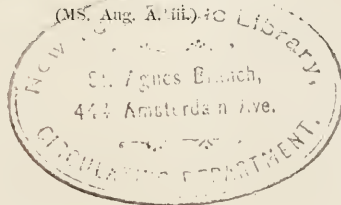 (MS. Aug. A. iii.)
Library,
St. Agnes Branch,
444 Amsterdam Ave.
CIRCULATING DEPARTMENT.